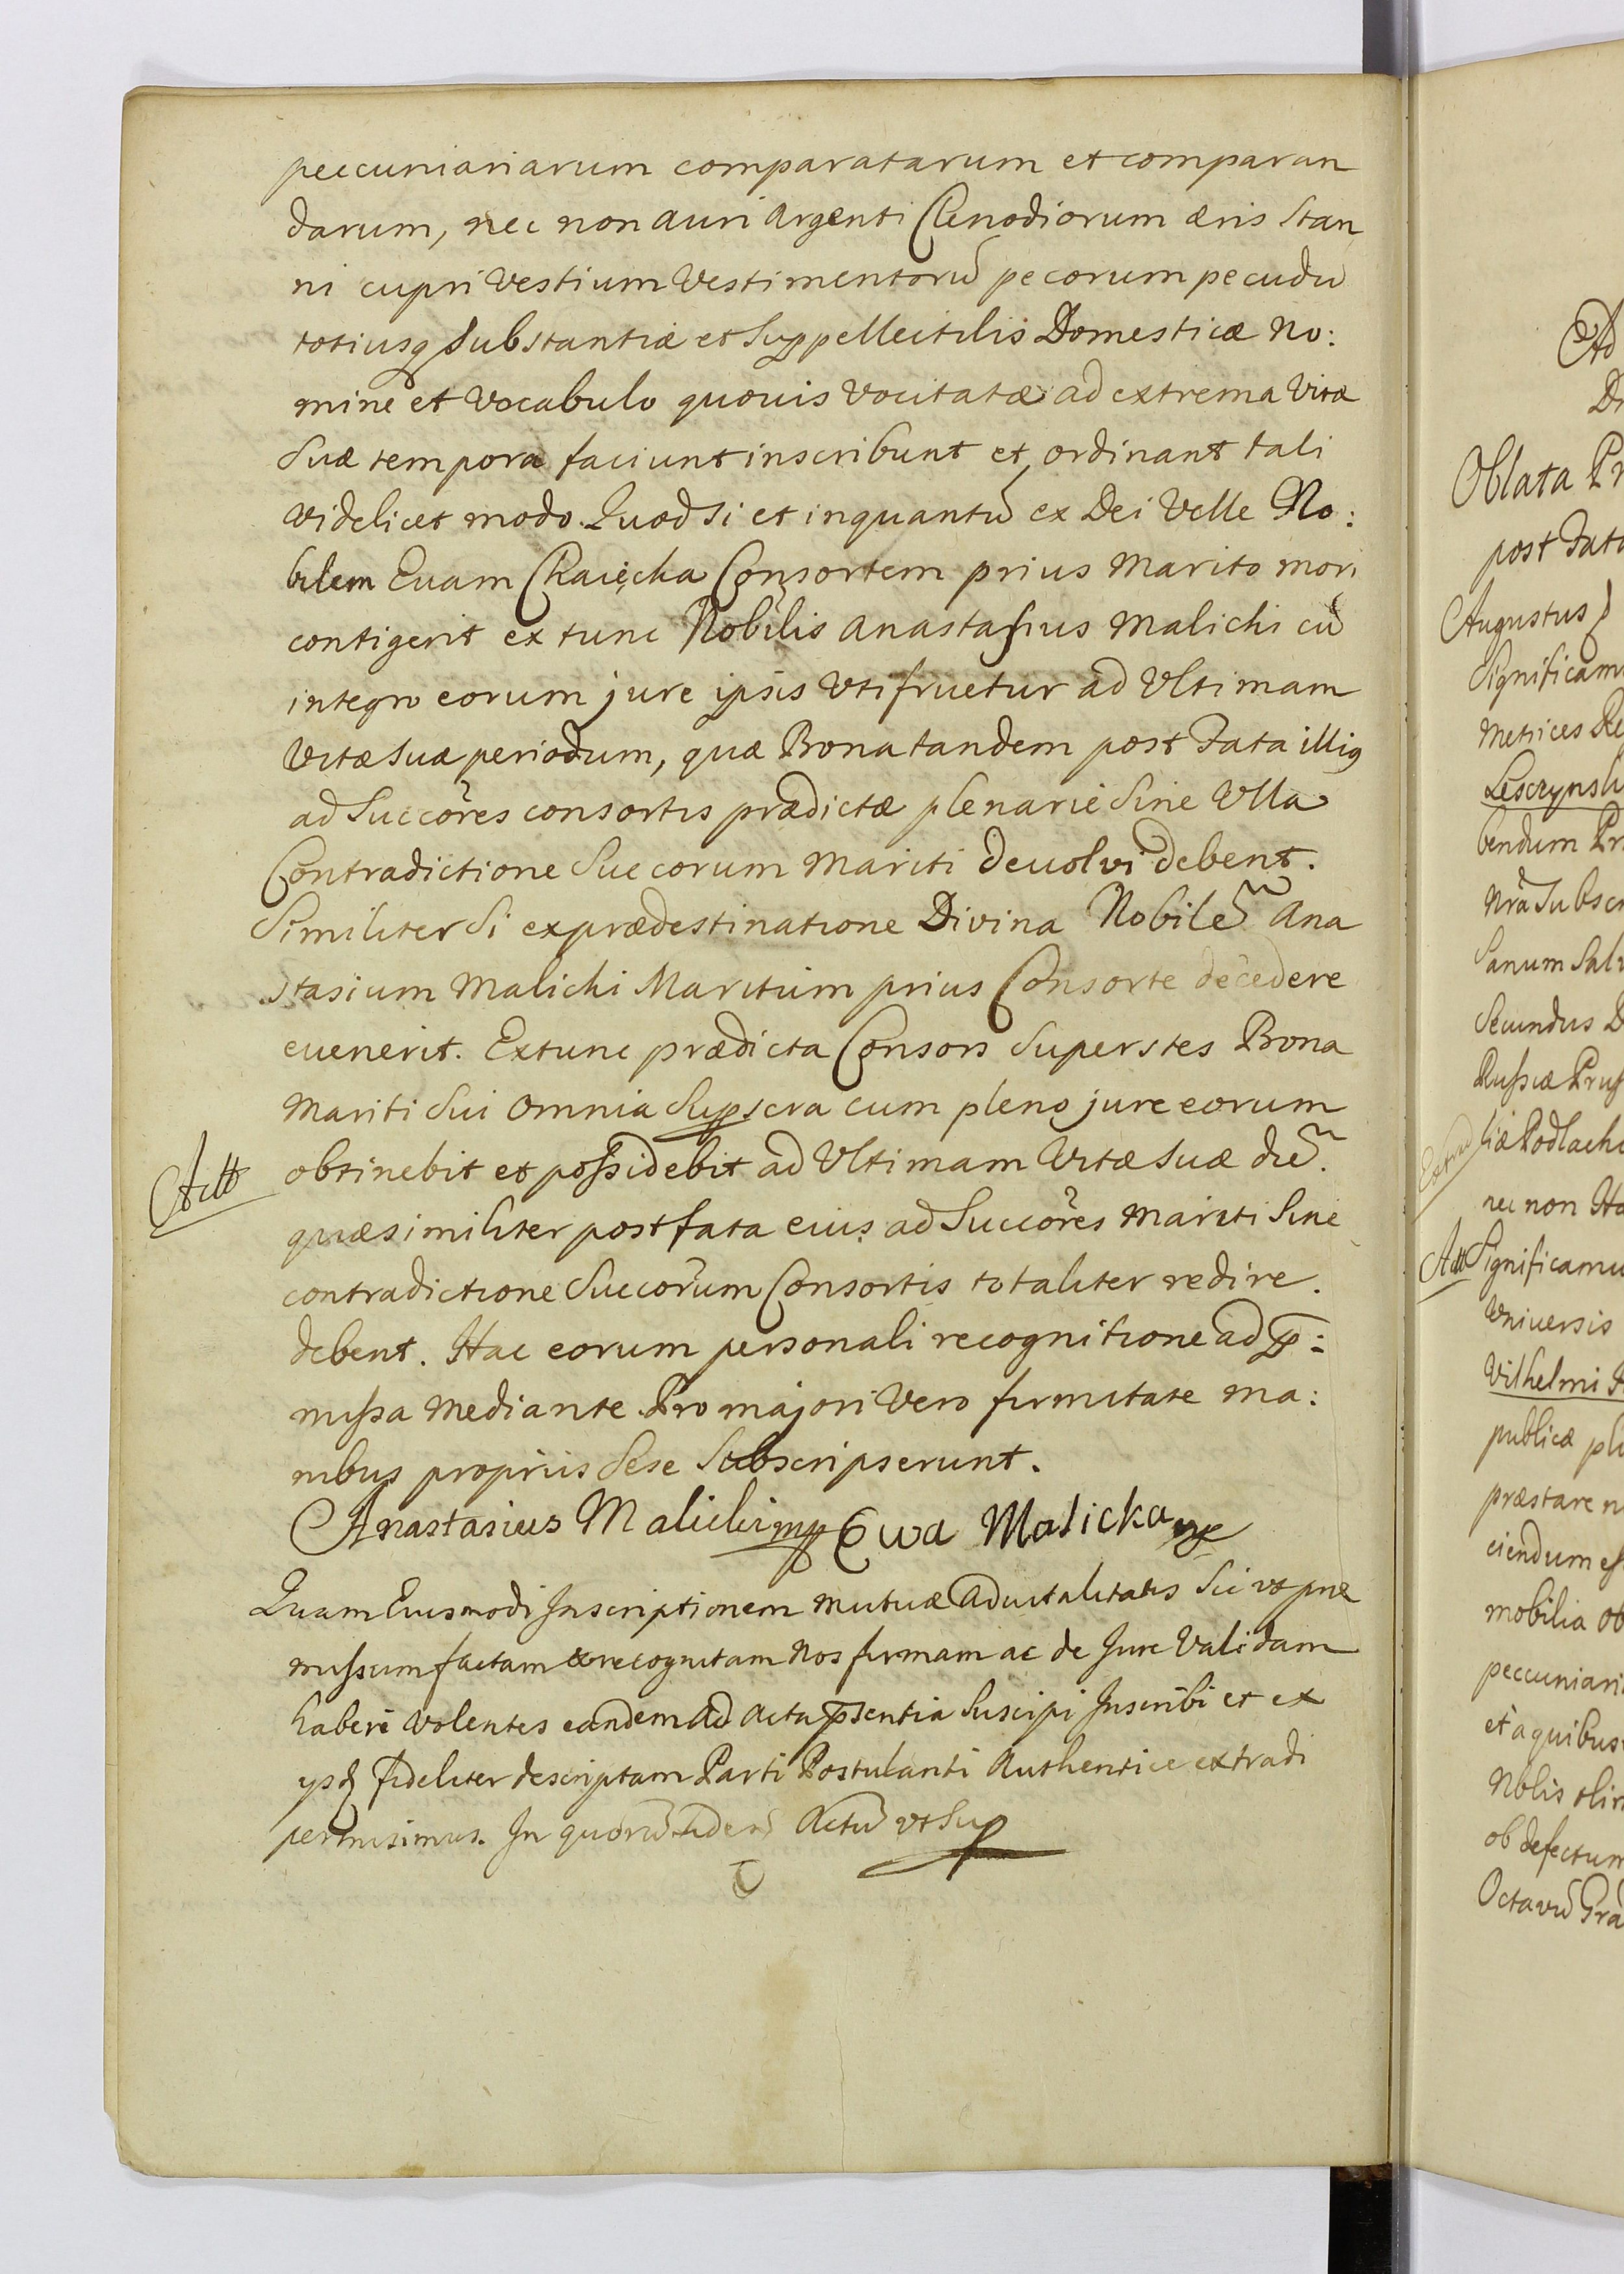 peccuniariarum comparatarum et comparan
darum, nec non auri argenti Clenodiorum æris stan
ni cupri Vestium Vestimentorũ pecorum pecudũ
totiusq substantiæ et Suppellectilis Domesticæ No:
mine et Vocabulo quouis Vocitatæ ad extrema Vitæ
Suæ tempora faciunt inscribunt et ordinant tali
videlicet modo. Quod si et inquantũ ex Dei Velle No:
bilem Euam Chaięcka Consortem prius Marito mori
contigerit extunc Nobilis Anastasius Malicki cũ
integro eorum jure ipsis Vtifruetur ad Vltimam
Vitæ suæ periodum, quæ Bona tandem post Fata illiq
ad Succõres consortis prædictæ plenarie Sine Vlla
Contradictione Succorum Mariti deuolvi debent.
Similiter Si ex prædestinatione Divina Nobilẽ Ana
stasium Malicki Maritum prius Consorte decedere
euenerit. Extunc prædicta Consors Superstes Bona
Mariti Sui Omnia cum pleno jure eorum
obtinebit et possidebit ad Vltimam Vitæ Suæ diẽ.
quæ similiter post fata eius ad Succõres Mariti Sine
contradictione Succõrum Consortis totaliter redire.
debent. Hac eorum personali recognitione ad p:
missa Mediante. Pro majori Vero firmitate ma:
nibus propriis Sese Subscripserunt.
Anastasius Malicki mp Ewa Malicka mp
Quam Eiusmodi Inscriptionem Mutuæ Aduitalitatis Sic vt præ
missum factam & recognitam Nos firmam ac de Jure Validam
haberi Volentes eandem Ad Acta pſentia Suscipi Inscribi et ex
ysd fideliter descriptam Parti Postulanti Authentice extradi
permisimus. In quorũ fidem Actũ vt Sup
Actt
Ad
Oblata Pr
post Fata
Augustus
Significamu
Metrices Re
Lesczynski
bendum Pr
Nrã Subscr
Sanum Salv
Secundus D
Russiæ Pruss
liæ Podlachi
nec non
Actt
Significamu
Vniuersis
Vilhelmi
publicæ
præstare n
ciendum es
mobilia ob
peccuniari
et aquibus
Nblis olim
ob defectum
Octavũ Grã